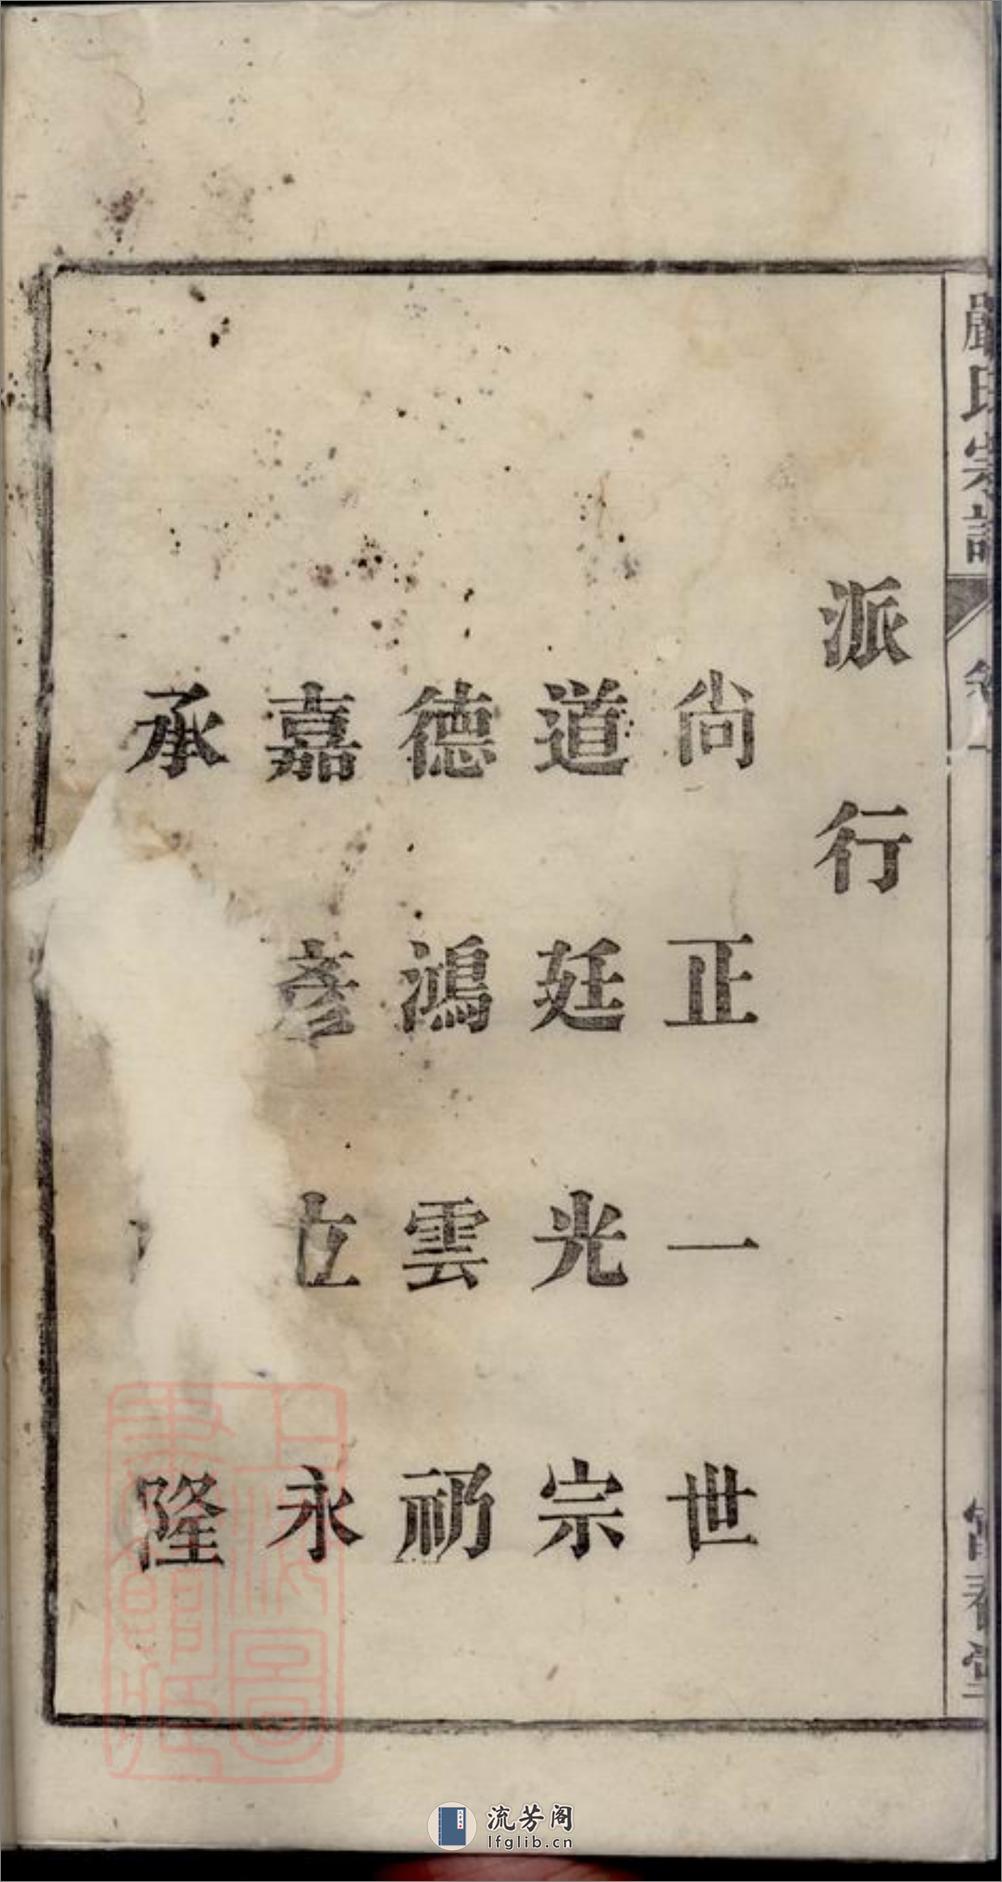 嚴氏宗譜
卷一
富春堂
派行
尚正一世
道廷光宗
德鴻雲礽
嘉彥立永
承隆
流芳阁
lfglib.cn